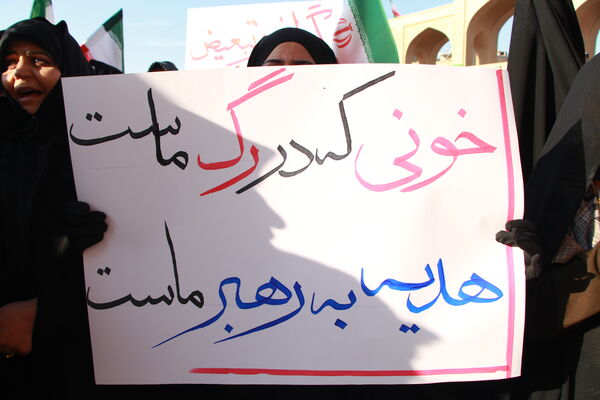 تبعیض
خونی که در رگ ماست
هدیه به رهبر ماست